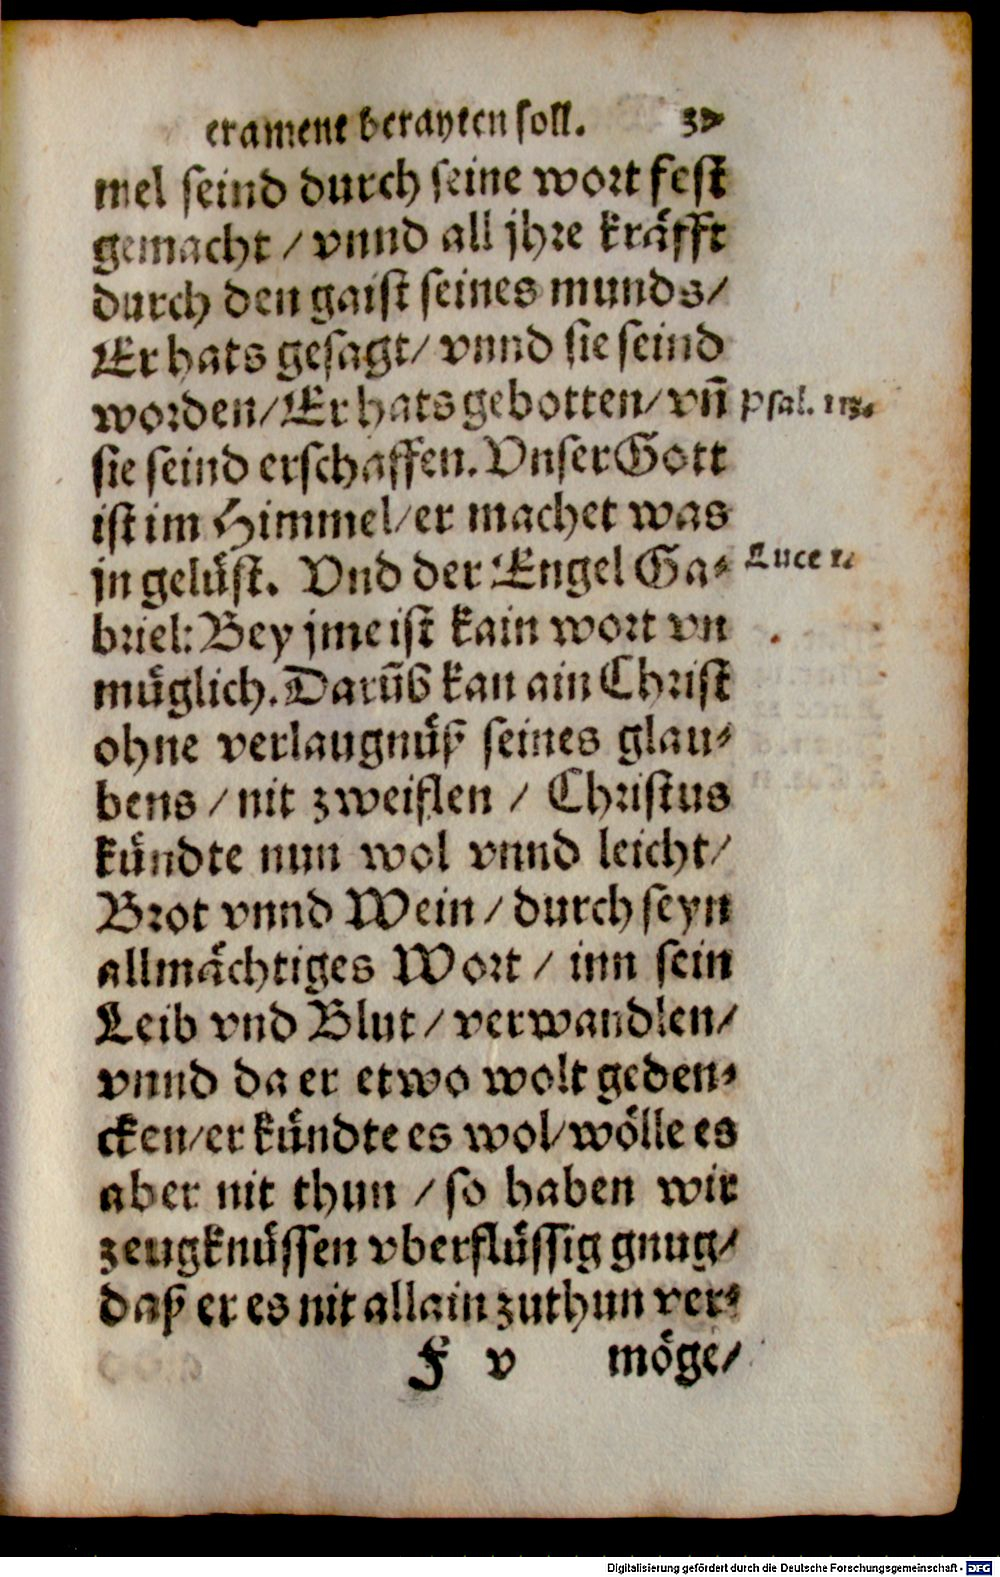 crament berayten soll. 37
mel seind durch seine wort fest
gemacht / vnnd all jhre kräfft
durch den gaist seines munds/
Er hats gesagt/ vnnd sie seind
worden/Er hats gebotten/ vn̄
Psal. 113.
sie seind erschaffen. Vnser Gott
ist im Himmel/er machet was
jn gelüst. Vnd der Engel Ga-
Luce 1.
briel: Bey jme ist kain wort vn
müglich. Darūb kan ain Christ
ohne verlaugnüß seines glau-
bens / nit zweiflen / Christus
kündte nun wol vnnd leicht/
Brot vnnd Wein / durch seyn
allmächtiges Wort / inn sein
Leib vnd Blut / verwandlen/
vnnd da er etwo wolt geden-
cken/er kündte es wol/wölle es
aber nit thun / so haben wir
zeugknüssen vberflüssig gnug/
daß er es nit allain zuthun ver-
F v möge/
Digitalisierung gefördert durch die Deutsche Forschungsgemeinschaft - DFG